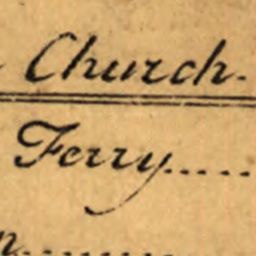 Church.
Ferry.....
n.........